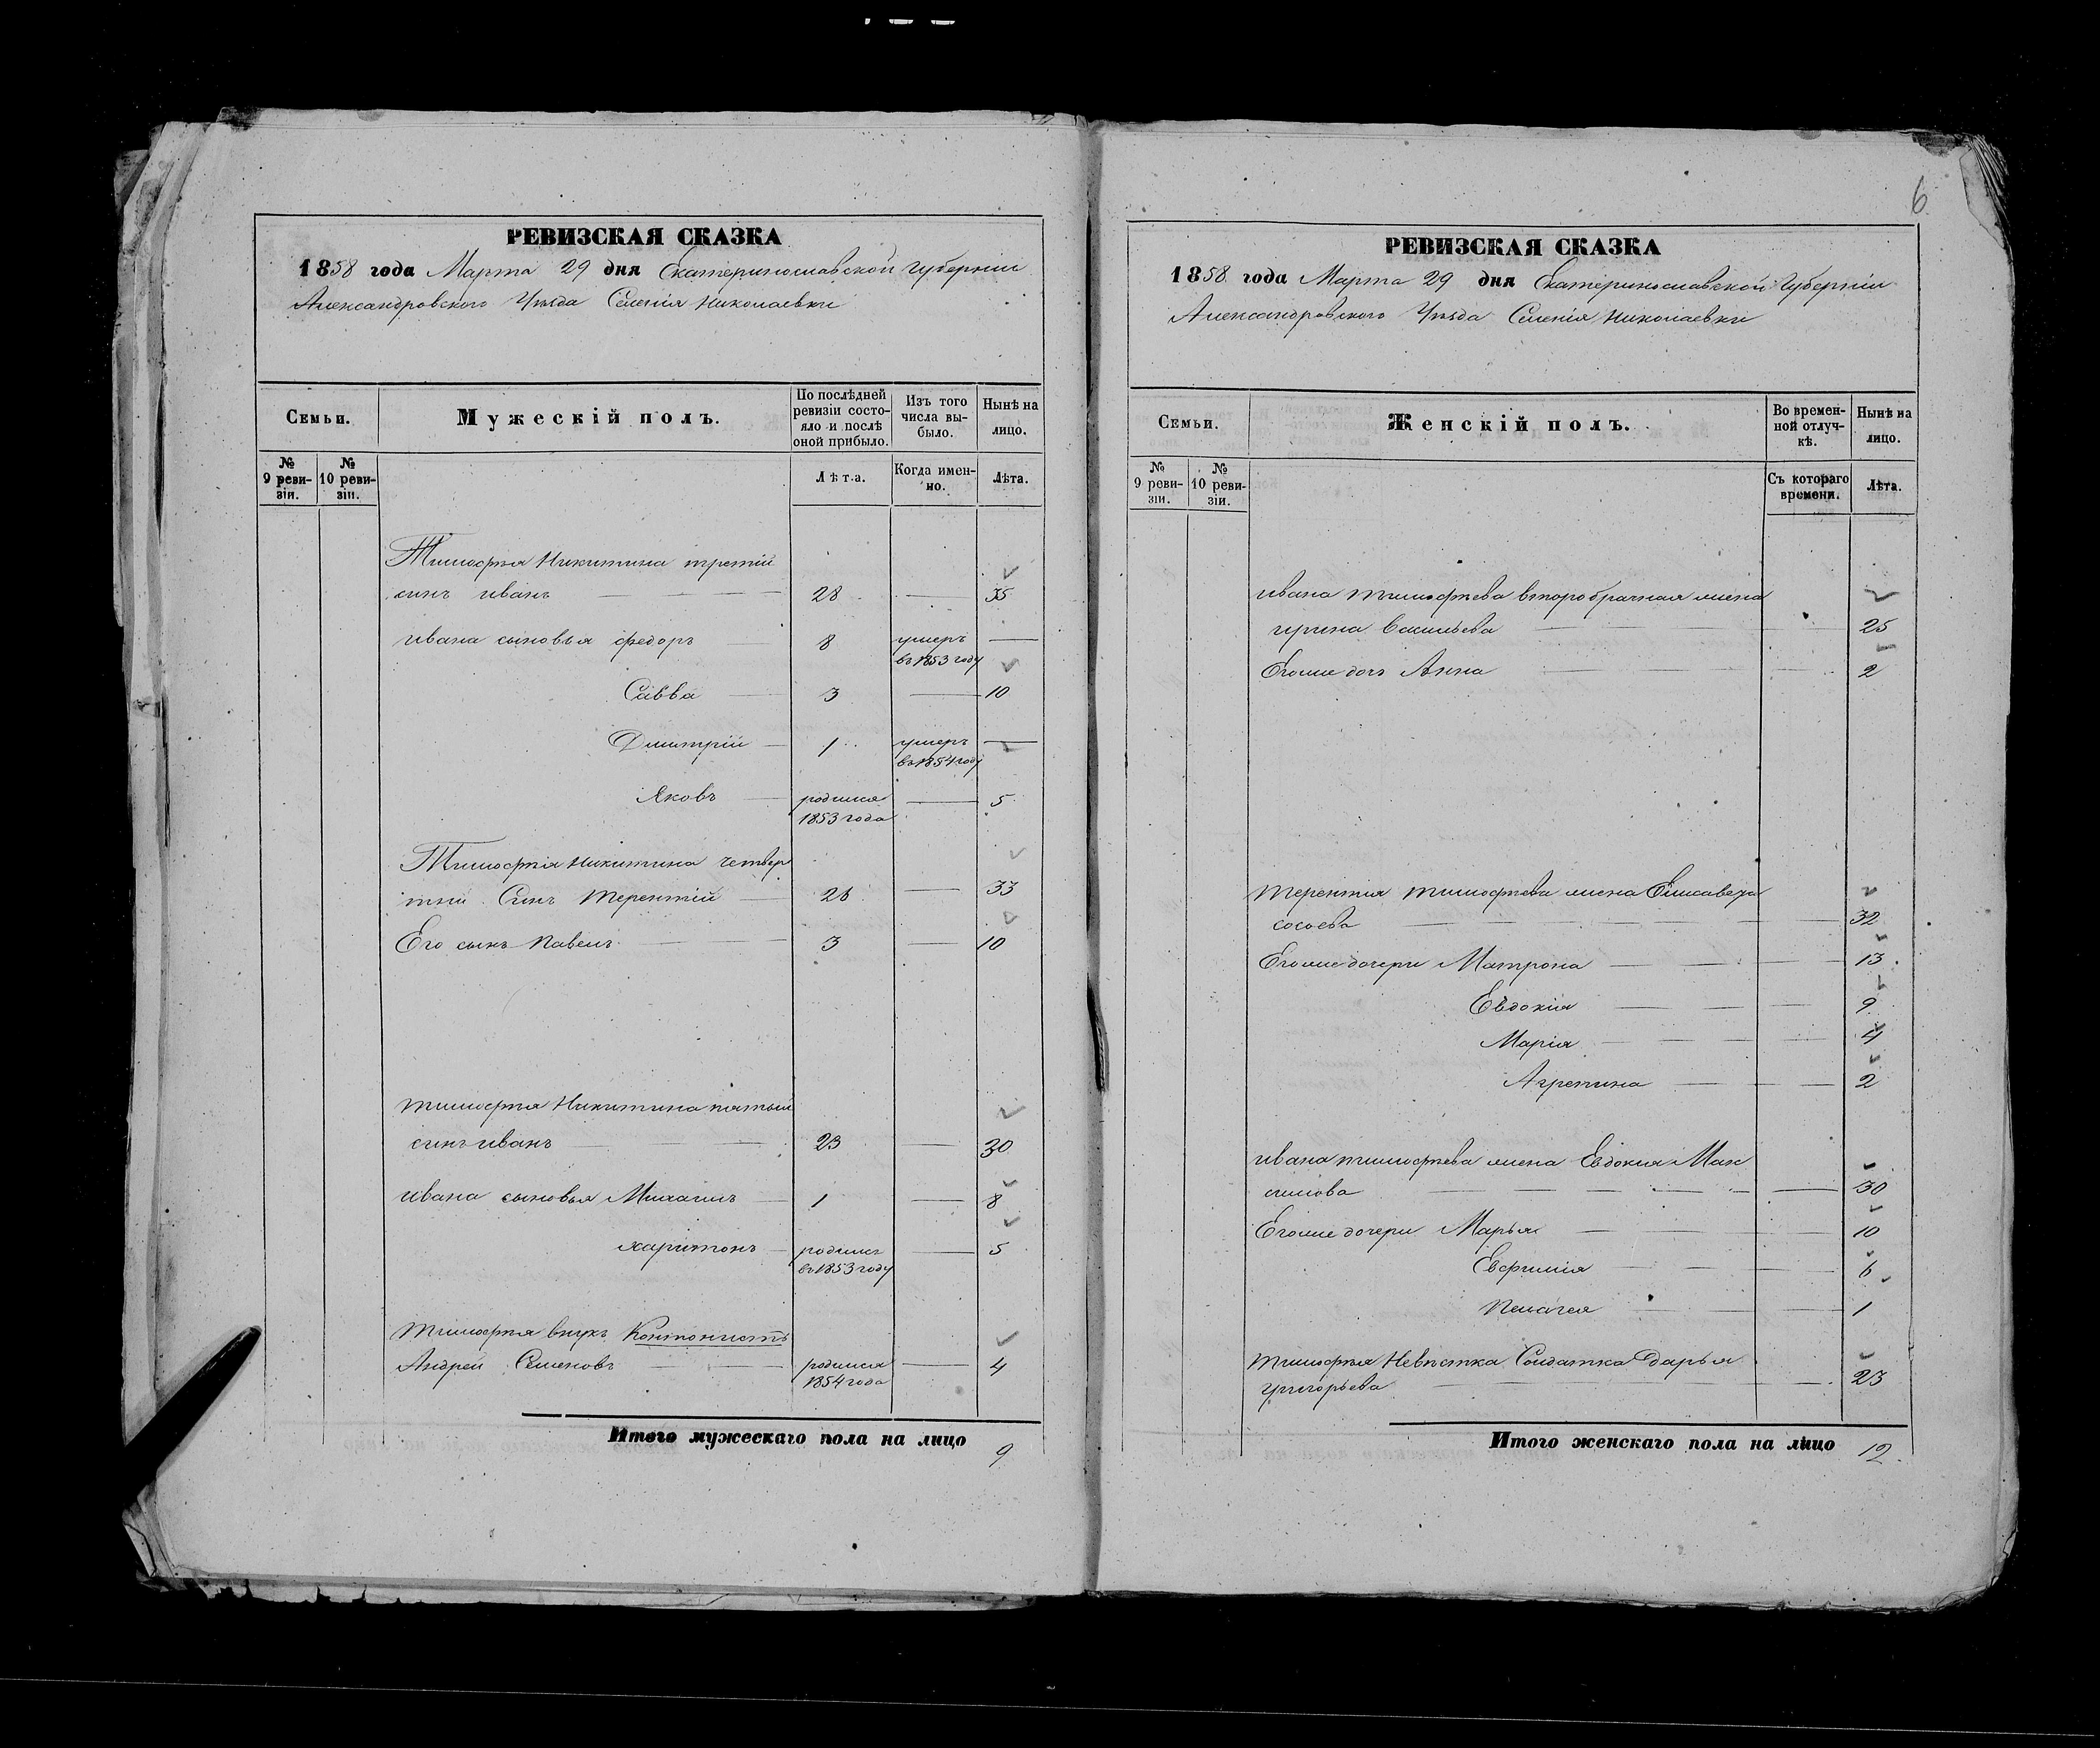 РЕВИЗСКАЯ СКАЗКА
1858 года Марта 29 дня Екатеринославской Губерніи
Александровского Уѣзда Селенія Николаевки
Семьи.
Мужескій полъ.
По послѣдней ревизіи состояло и послѣ оной прибыло.
Изъ того числа выбыло.
Нынѣ на лицо.
№ 9 ревизіи.
№ 10 ревизіи.
Лѣта.
Когда именно.
Лѣта.
Тимофѣя Никитина третій
синъ иванъ 28 35
ивана сыновья федоръ 8 умеръ
въ 1853 году
Савва 3 10
Дмитрій 1 умеръ
въ 1854 году
Яковъ родился 5
1853 года
Тимофѣя Никитина четвер
тый Синъ Терентій 26 33
Его сынъ Павелъ 3 10
Тимофѣя Никитина пятый
синъ иванъ 23 30
ивана сыновья Михаилъ 1 8
харитонъ родилсь 5
въ 1853 году
Тимофѣя внукъ Контонистъ
Андрей Семеновъ родился 4
1854 года
Итого мужескаго пола на лицо 9
6
РЕВИЗСКАЯ СКАЗКА
1858 года Марта 29 дня Екатеринославской Губерніи
Александровского Уѣзда Селенія Николаевки
Семьи.
Женскій полъ.
Во временной отлучкѣ.
Нынѣ на лицо.
№ 9 ревизіи.
№ 10 ревизіи.
Съ котораго времени.
Лѣта.
ивана тимофѣева второбрачная жена
ирина Васильева 25
Егоже дочь Анна 2
Терентія тимофѣева жена Елисавета
сосоева 32
Егоже дочери Матрона 13
Евдокія 9
Марія 4
Агрепина 2
ивана тимофѣева жена Евдокия Мак
симова 30
Егоже дочери Марья 10
Евфимія 6
Пелагея 1
Тимофѣя Невѣстка Солдатка Дарья
григорьева 23
Итого женскаго пола на лицо 12.